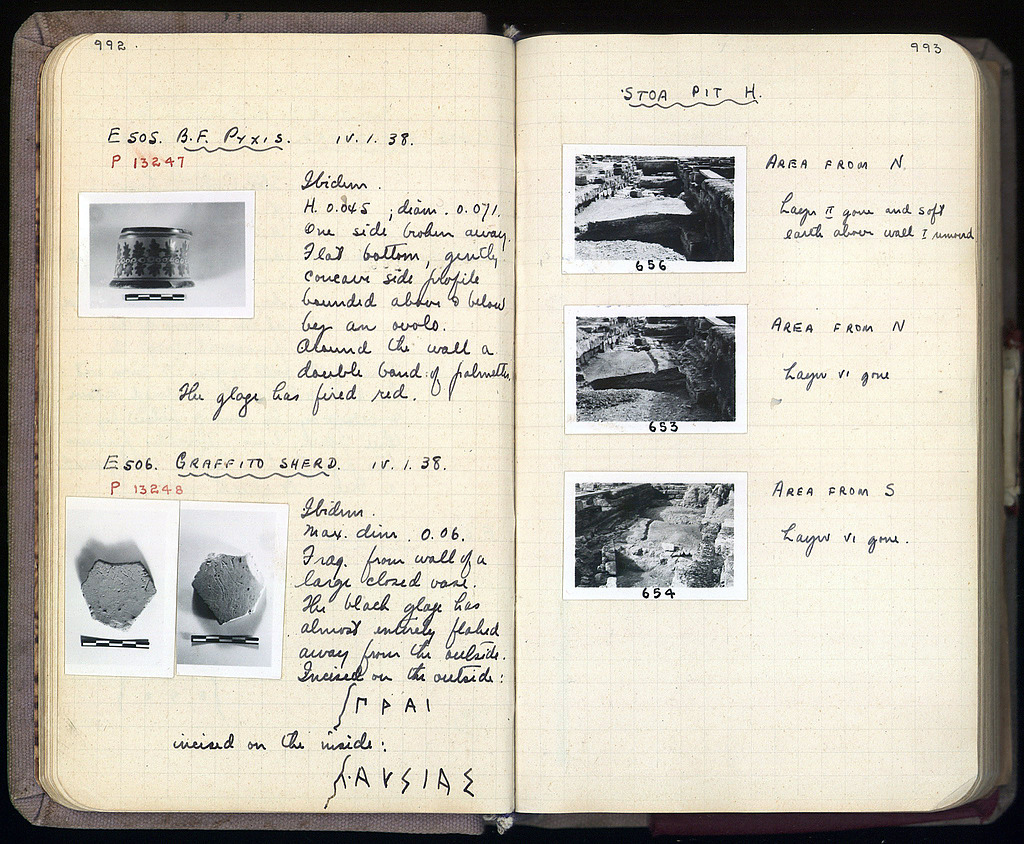 992.
E 505. B.F. PYXIS. IV. 1. 38.
P 13247
Ibidem.
H. 0.045 ; diam. 0.071.
One side broken away.
Flat bottom, gently
concave side profile
bounded above & below
by an ovolo.
Around the wall a
double band of palmettes.
The glaze has fired red.
E 506. GRAFFITO SHERD. IV. 1. 38.
P 13248
Ibidem.
Max. dim. 0.06.
Frag. from wall of a
large closed vase.
The black glaze has
almost entirely flaked
away from the outside.
Incised on the outside:
ΓΡΑΙ
incised on the inside:
ΑΥΣΙΑΣ
993
STOA PIT H.
AREA FROM N.
Layer II gone and soft
earth above wall I removed
656
AREA FROM N
Layer VI gone
653
AREA FROM S
Layer VI gone.
654